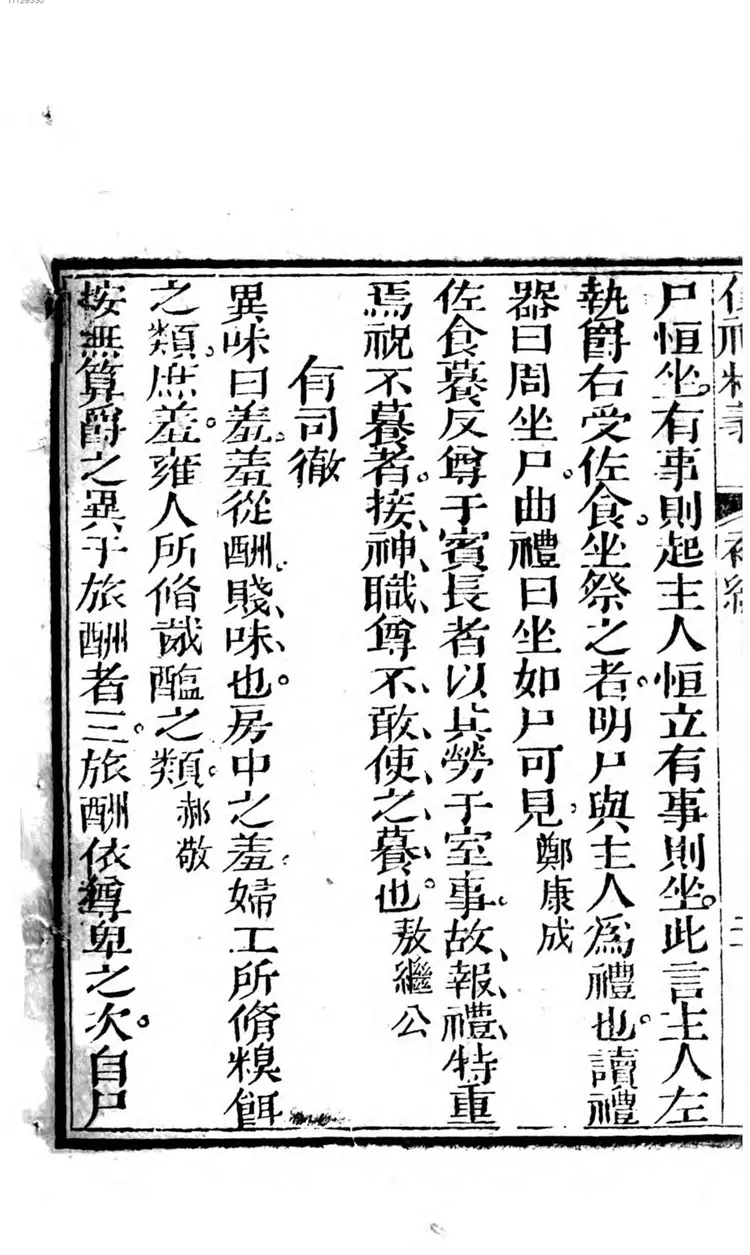 11129330
尸恒坐。有事則起主人恒立有事則坐。此言主人左
執爵右受佐食。坐祭之者。明尸與主人爲禮也。讀禮
器曰周坐尸。曲禮曰坐如尸可見。鄭康成
佐食養反尊于賓長者以其勞于室事。故、報、禮、特重
焉祝不暮者。接、神、職、尊不、敢、使、之、暮、也。敖繼公
有司徹
異味曰羞。羞從酬。賤、味、也。房中之羞。婦工所脩糗餌
之類。庶羞。雍人所脩胾醢之類。郝敬
按無算爵之異于旅酬者三。旅酬依尊卑之次。自尸